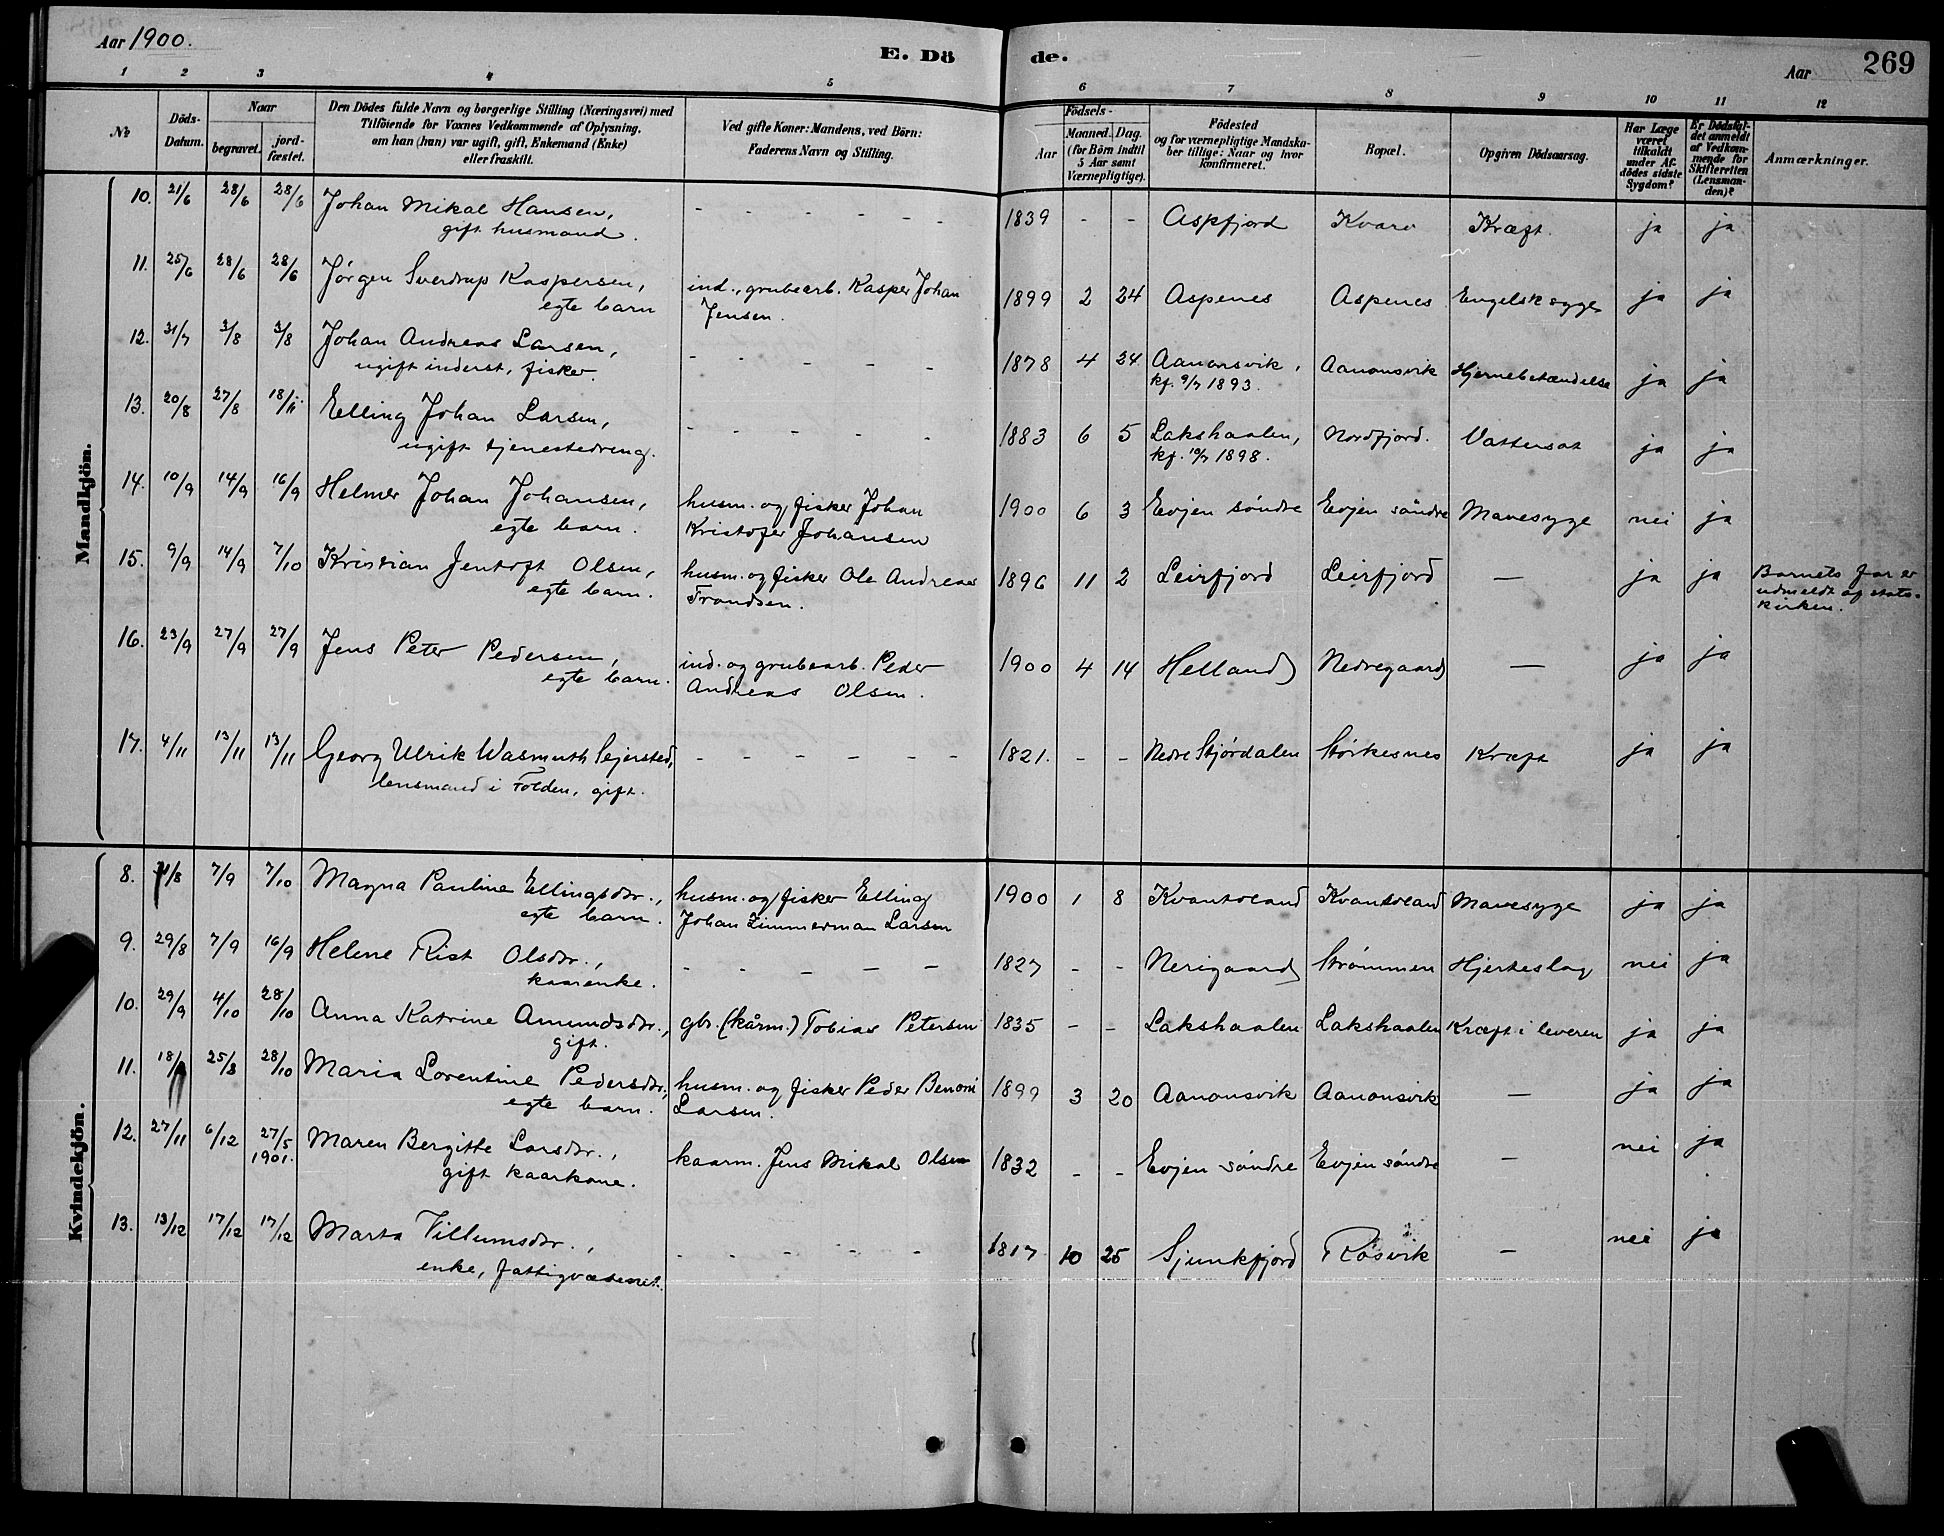 Aar 1900.
E. Dö de.
Aar
269
1 2 3 4 5 6 7 8 9 10 11 12
No
Döds-Datum.
Naar
begravet.
jord-fæstet.
Den Dödes fulde Navn og borgerlige Stilling (Næringsvei) med
Tilföiende for Voxnes Vedkommende af Oplysning,
om han (hun) var ugift, gift, Enkemand (Enke)
eller fraskilt.
Ved gifte Koner: Mandens, ved Börn:
Faderens Navn og Stilling.
Födsels-
Aar
Maaned. Dag.
(for Börn indtil
5 Aar samt
Værnepligtige).
Födested
og for værnepligtige Mandska-
ber tillige: Naar og hvor
konfirmeret.
Bopæl.
Opgiven Dödsaarsag.
Har Læge
været
tilkaldt
under Af-
dödes sidste
Sygdom?
Er Dödsfal-
det anmeldt
af Vedkom-
mende for
Skifteretten
(Lensman-
den)?
Anmærkninger.
Mandkjön.
10. 21/6 28/6 28/6 Johan Mikal Hansen, - - - - - - 1839 - - Aspfjord Kvarv Kræft. ja ja
gift husmand.
11. 25/6 28/6 28/6 Jørgen Sverdrup Kaspersen, ind., grubearb. Kasper Johan 1899 2 24 Aspenes Aspenes Engelsk syge ja ja
egte barn Jensen.
12. 31/7 3/8 3/8 Johan Andreas Larsen, - - - - - 1878 4 24 Aanonsvik, Aanonsvik Hjernebetændelse ja ja
ugift inderst, fisker. kf. 9/7 1893.
13. 20/8 27/8 18/11 Elling Johan Larsen, - - - - - 1883 6 5 Lakshaalen, Nordfjord. Vattersot ja ja
ugift tjenestedreng. kf. 10/7 1898.
14. 10/9 14/9 16/9 Helmer Johan Johansen, husm. og fisker Johan 1900 6 3 Evjen søndre Evjen søndre Mavesyge nei ja
egte barn. Kristofer Johansen
15. 9/9 14/9 7/10 Kristian Jentoft Olsen, husm. og fisker Ole Andreas 1896 11 2 Leirfjord Leirfjord — ja ja Barnets far er
egte barn. Trondsen. udmeldt af stats-
kirken.
16. 23/9 27/9 27/9 Jens Peter Pedersen, ind. og grubearb. Peder 1900 4 14 Helland Nedregaard — ja ja
egte barn. Andreas Olsen.
17. 4/11 13/11 13/11 Georg Ulrik Wasmuth Sejersted, - - - - - - 1821. - - Nedre Stjørdalen Størkesnes Kræft ja ja
lensmand i Folden, gift.
Kvindekjön.
8. 7/9 7/10 Magna Pauline Ellingsdr., husm. og fisker Elling 1900 1 8 Kvantoland Kvantoland Mavesyge ja ja
egte barn. Johan Zimmerman Larsen
9. 29/8 7/9 16/9 Helene Rist Olsdr., - - - - - 1827 - - Nerigaard Strømmen Hjerteslag nei ja
kaarenke.
10. 29/9 4/10 28/10 Anna Katrine Amundsdr., gbr. (kårm.) Tobias Petersen 1835 - - Lakshaalen Lakshaalen Kræft i leveren ja ja
gift.
11. 25/8 28/10 Maria Lorentine Pedersdr., husm. og fisker Peder Benoni 1899 3 20 Aanonsvik Aanonsvik — ja ja
egte barn. Larsen.
12. 27/11 6/12 27/5 1901. Maren Bergitte Larsdr., kaarm. Jens Mikal Olsen 1832 - - Evjen søndre Evjen søndre — nei ja
gift kaarkone.
13. 13/12 17/12 17/12 Marta Villumsdr., - - - - - - 1817 10 25 Sjunkfjord Røsvik — nei ja
enke, fattigvæsenet.